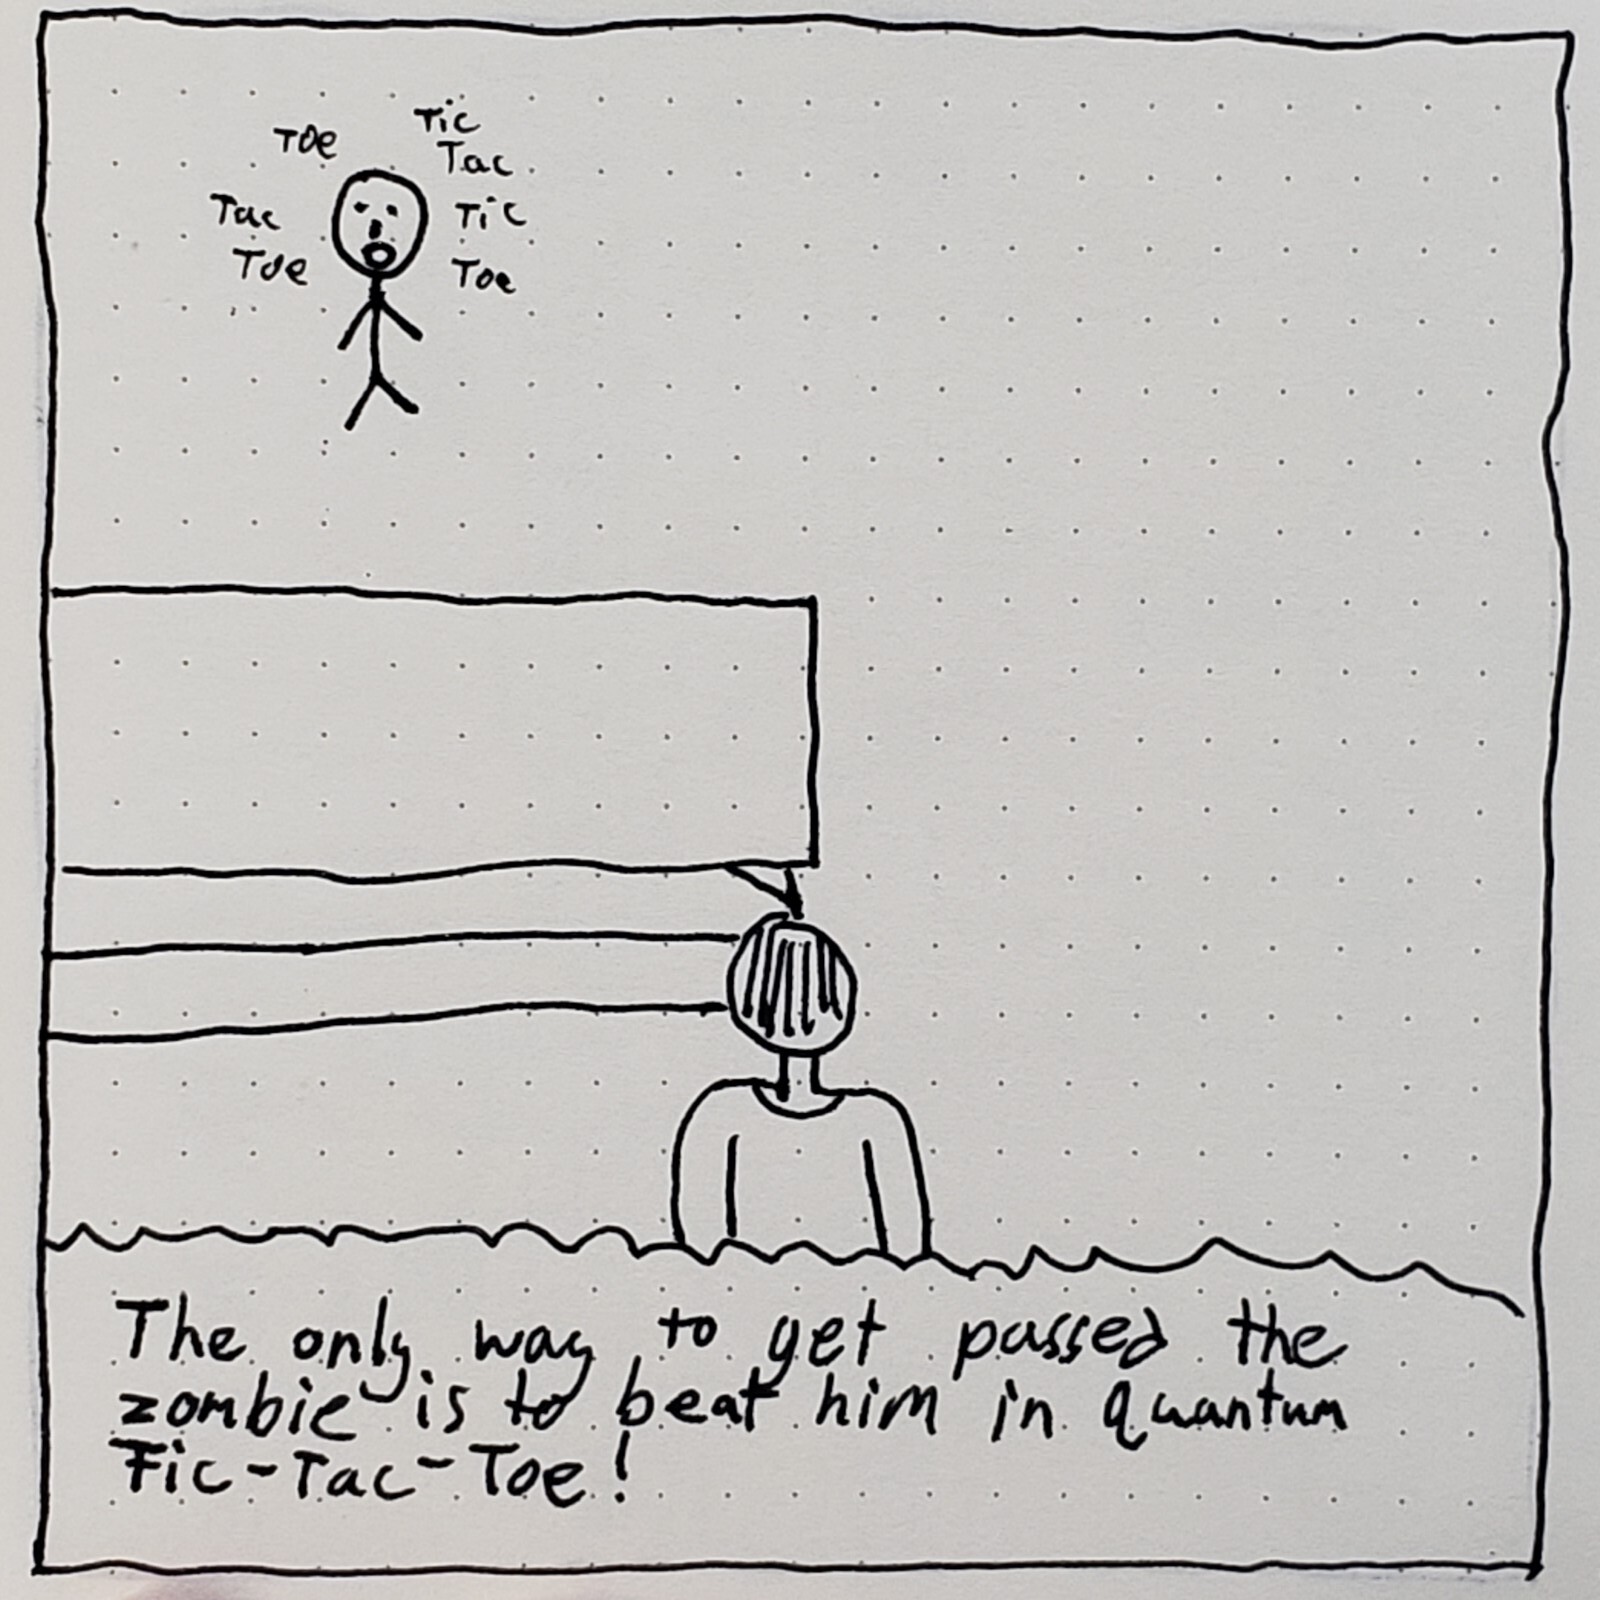 Toe
Tic
Tac
Tac
Tic
Toe
Toe
The only way to get passed the
zombie is to beat him in quantum
Tic-Tac-Toe!